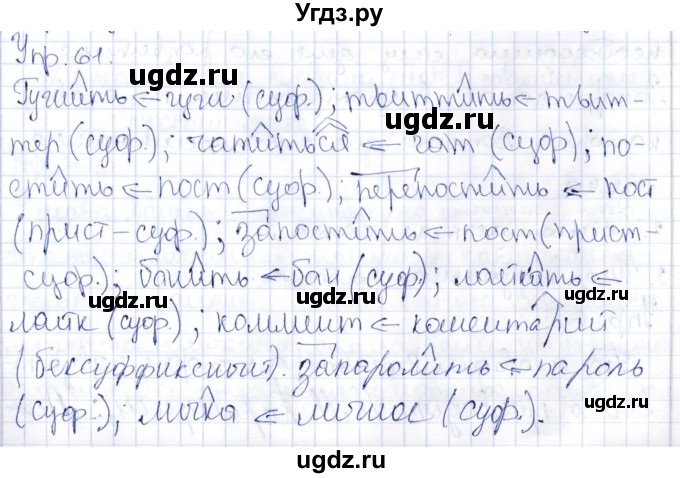 Угдз.ру
Упр. 61.
Гуглить ← гугл (суф.); твиттить ← твит-
тер (суф.); чатиться ← чат (суф); по-
стить ← пост (суф.); перепостить ← пост
(прист-суф.); запостить ← пост (прист-
суф.); банить ← бан (суф); лайкать ←
лайк (суф.); коммент ← коментарий
(бессуффиксный). запаролить ← пароль
(суф.); мыка ← личное (суф.).
ugdz.ru
ugdz.ru
ugdz.ru
ugdz.ru
ugdz.ru
ugdz.ru
ugdz.ru
ugdz.ru